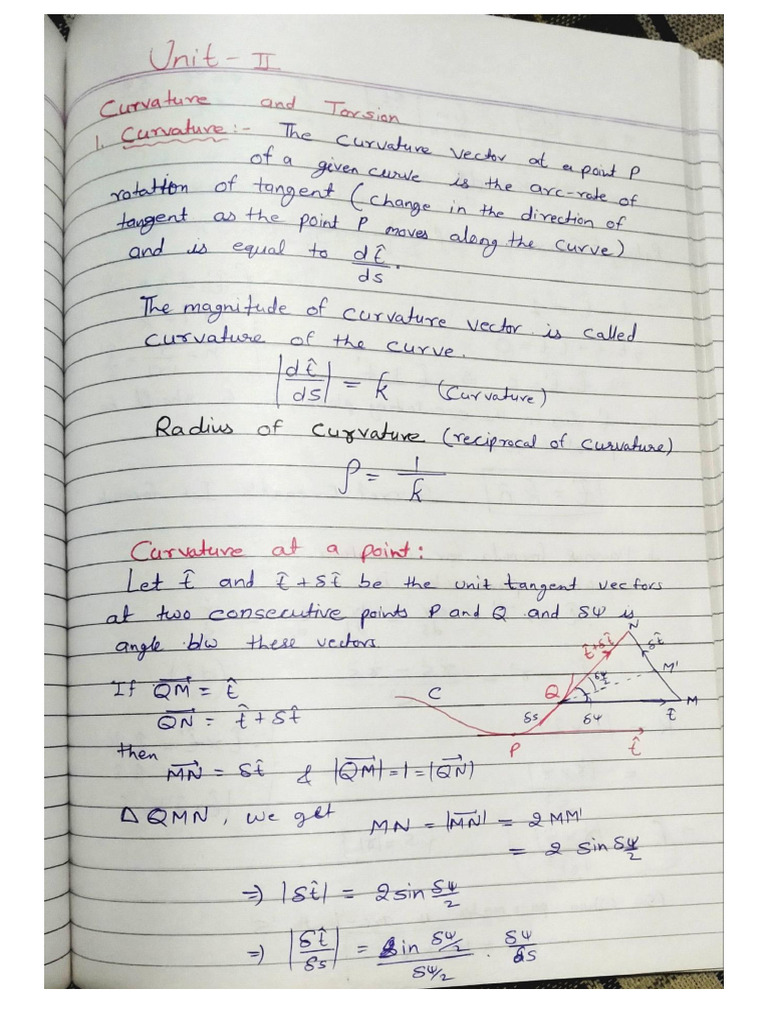 Unit - II
Curvature and Torsion
1. Curvature :- The curvature vector at a point P
of a given curve is the arc-rate of
rotation of tangent (change in the direction of
tangent as the point P moves along the curve)
and is equal to dt̂/ds.
The magnitude of curvature vector is called
curvature of the curve.
|dt̂/ds| = k (Curvature)
Radius of Curvature (reciprocal of curvature)
ρ = 1/k
Curvature at a point:
Let t̂ and t̂+δt̂ be the unit tangent vectors
at two consecutive points P and Q and δψ is
angle b/w these vectors.
If QM⃗ = t̂
QN⃗ = t̂+δt̂
then
MN⃗ = δt̂ & |QM⃗| = 1 = |QN⃗|
C
P
Q
N
M
M'
t̂+δt̂
δt̂
δψ/2
δψ
δs
t̂
t̂
Δ QMN, we get MN = |MN⃗| = 2MM'
= 2 sin δψ/2
⇒ |δt̂| = 2 sin δψ/2
⇒ |δt̂/δs| = sin δψ/2 / δψ/2 · δψ/δs